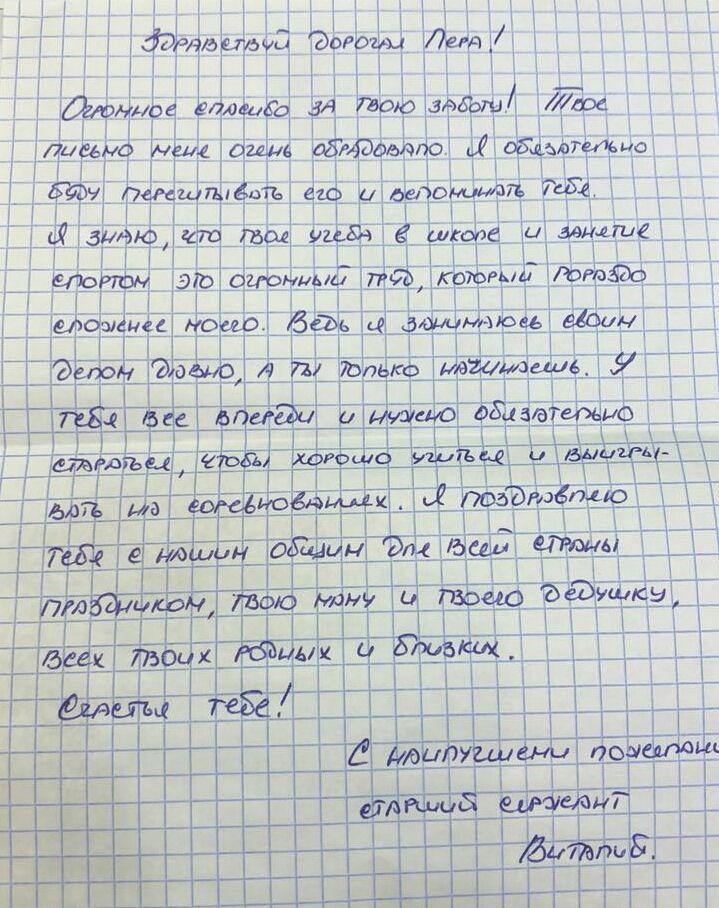 Здравствуй дорогая Лера!
Огромное спасибо за твою заботу! Твое
письмо меня очень обрадовало. Я обязательно
буду перечитывать его и вспоминать тебя.
Я знаю, что твоя учеба в школе и занятие
спортом это огромный труд, который гораздо
сложнее моего. Ведь я занимаюсь своим
делом давно, а ты только начинаешь. У
тебя все впереди и нужно обязательно
стараться, чтобы хорошо учиться и выигры-
вать на соревнованиях. Я поздравляю
тебя с нашим общим для всей страны
праздником, твою маму и твоего дедушку,
всех твоих родных и близких.
Счастья тебе!
С наилучшеми пожелани
старший сержант
Виталий.